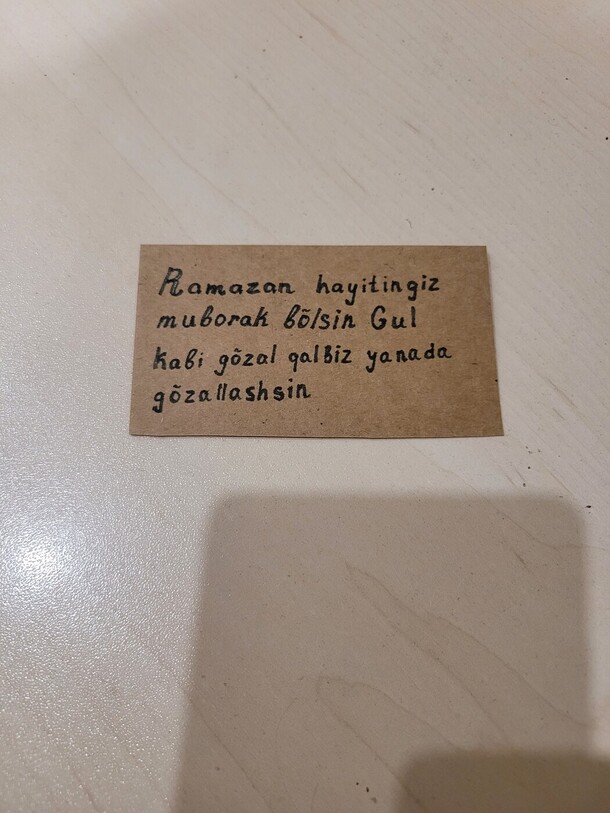 Ramazan hayitingiz
muborak bõlsin Gul
kabi gõzal qalbiz yanada
gõzallashsin